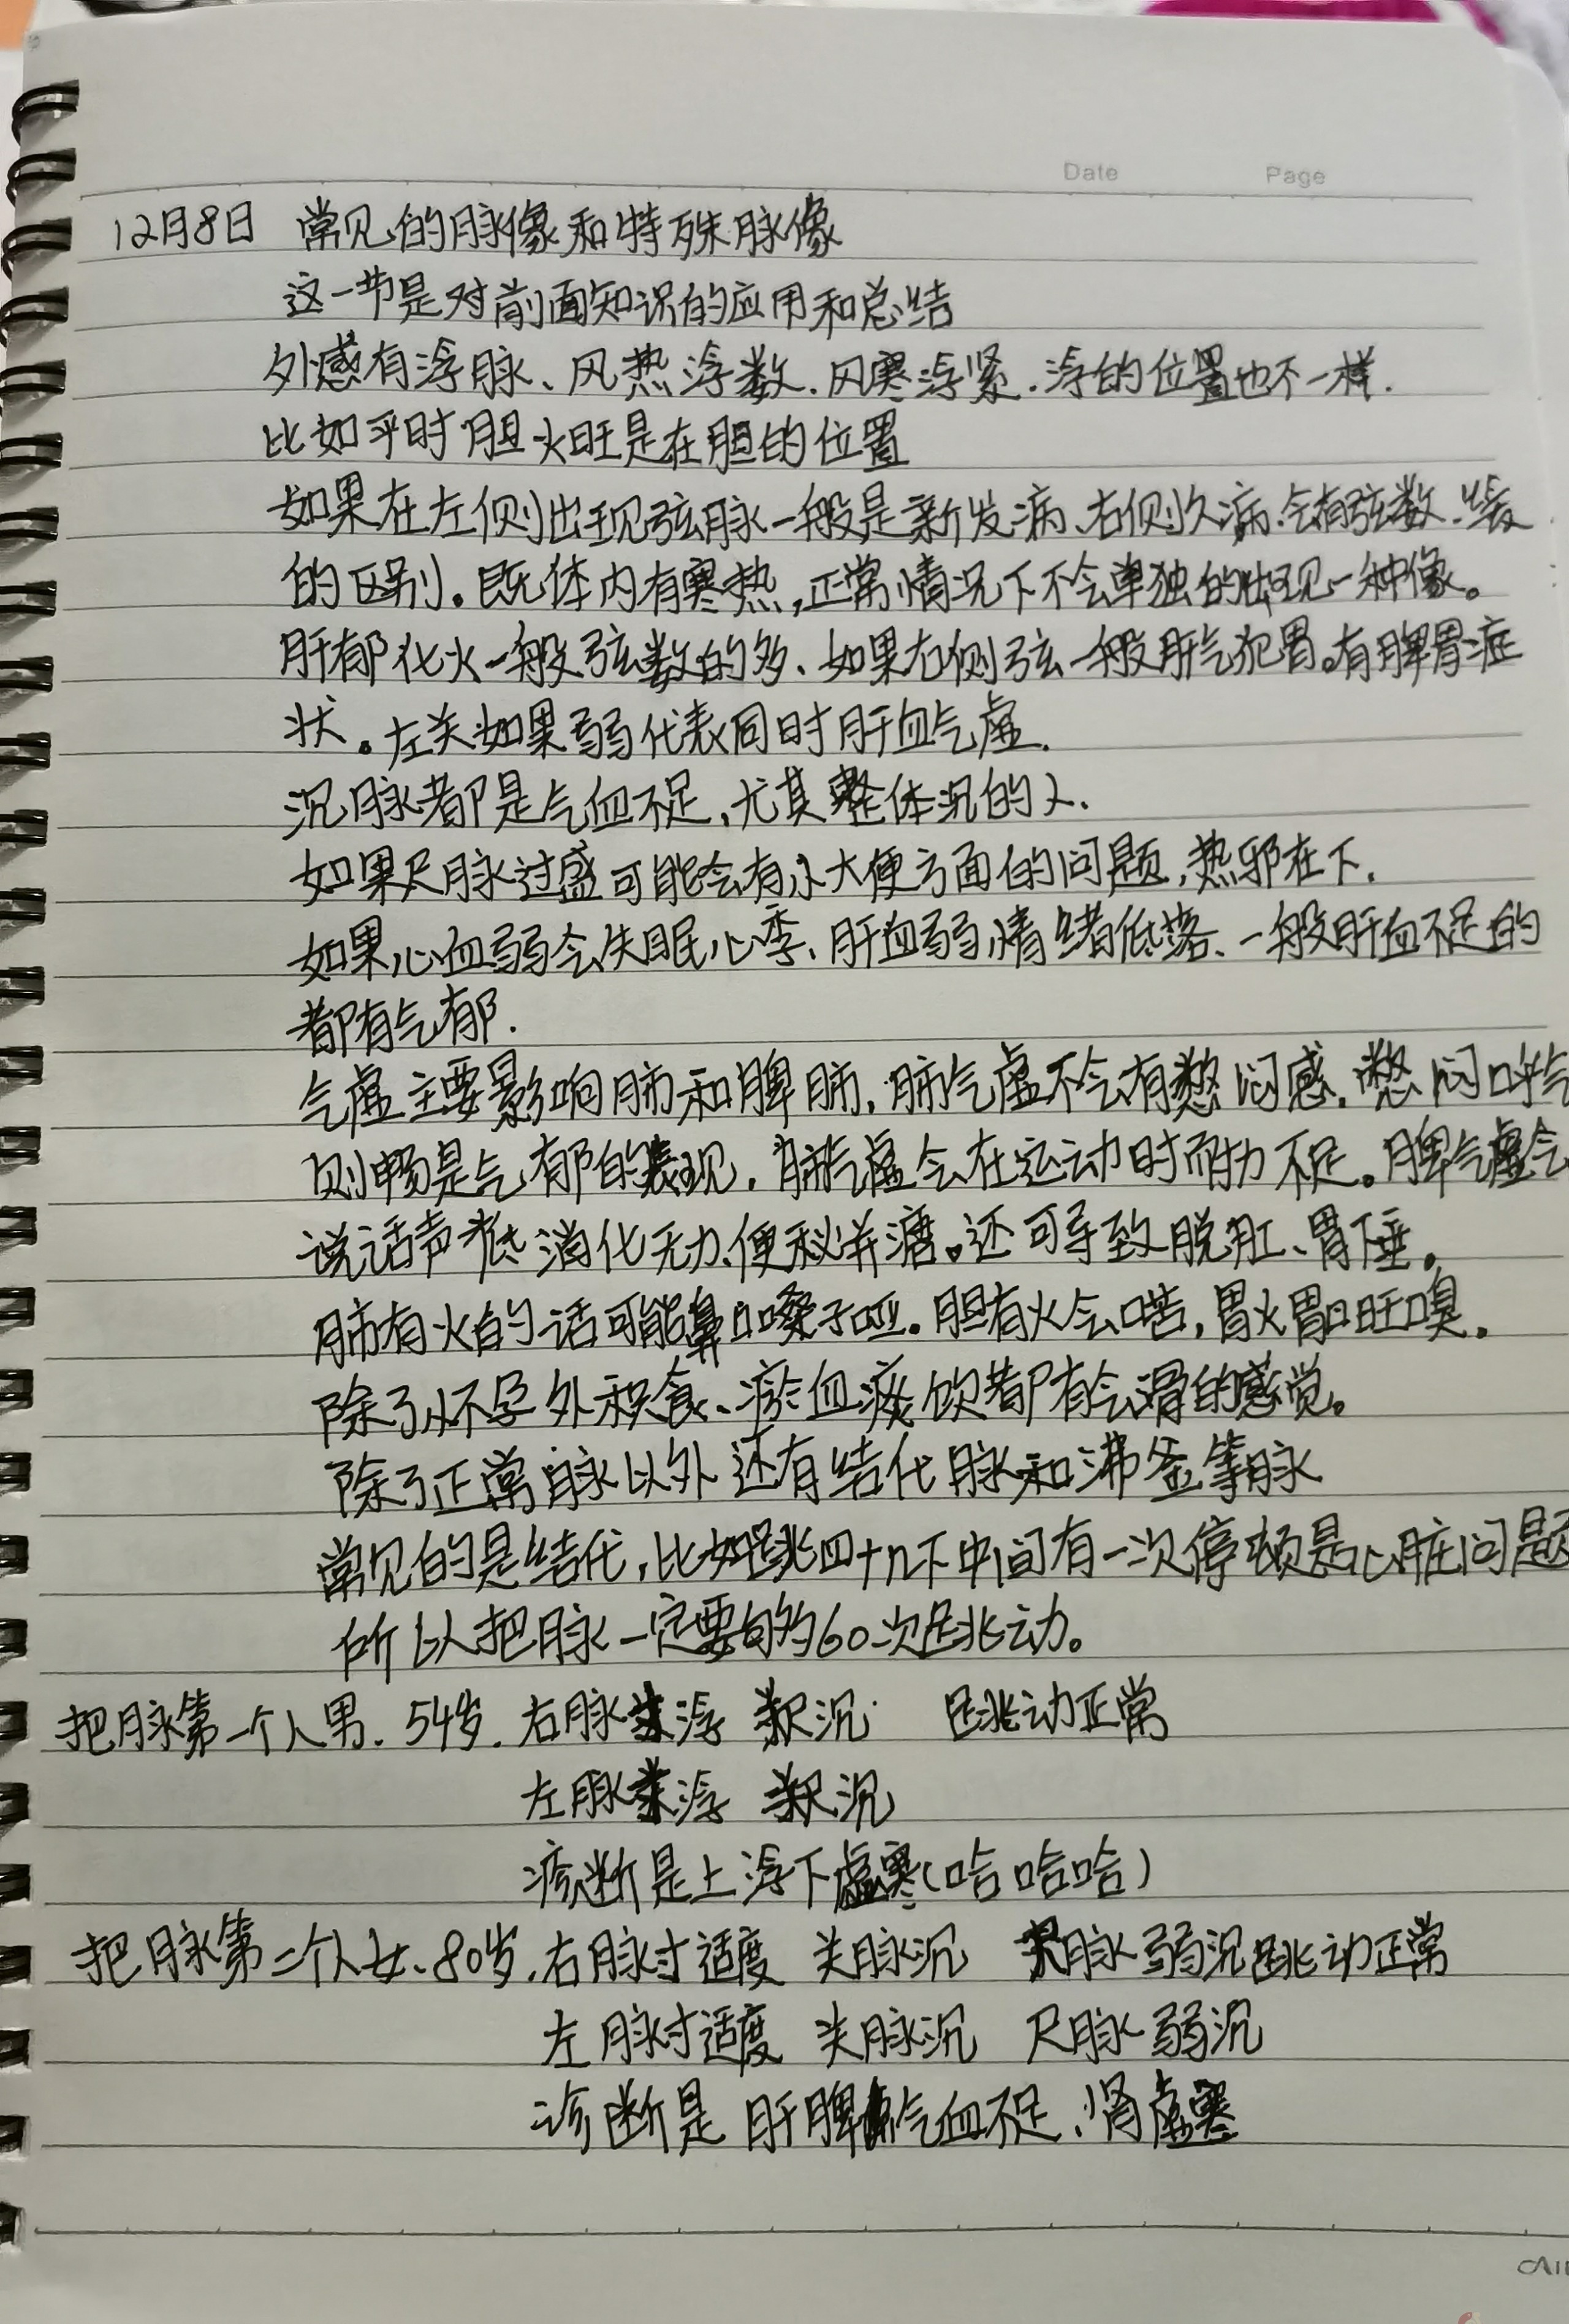 Date Page
12月8日 常见的脉像和特殊脉像
这一节是对前面知识的应用和总结
外感有浮脉、风热浮数.风寒浮紧.浮的位置也不一样.
比如平时胆火旺是在胆的位置
如果在左侧出现弦脉一般是新发病、右侧久病.会有弦数.紧
的区别。既体内有寒热,正常情况下不会单独的出现一种像。
肝郁化火一般弦数的多、如果右侧弦一般肝气犯胃。有脾胃症
状。左关如果弱代表同时肝血气虚.
沉脉都是气血不足,尤其整体沉的人.
如果尺脉过盛可能会有小大便方面的问题,热邪在下.
如果心血弱会失眠心季、肝血弱情绪低落、一般肝血不足的
都有气郁.
气虚主要影响肺和脾肺,肺气虚不会有憋闷感.憋闷呼气
则畅是气郁的表现.肺气虚会在运动时耐力不足。脾气虚会
说话声低消化无力、便秘并溏。还可导致脱肛、胃下垂。
肺有火的话可能鼻口嗓子哑.胆有火会口苦,胃火胃口旺嗅.
除了怀孕外积食、瘀血痰饮都有会滑的感觉。
除了正常脉以外还有结代脉和沸釜等脉
常见的是结代,比如跳四十几下中间有一次停顿是心脏问题
所以把脉一定要够60次跳动。
把脉第一个人男.54岁.右脉关浮 尺沉 跳动正常
左脉关浮 尺沉
诊断是上浮下虚寒(哈哈哈)
把脉第二个人女、80岁.右脉寸适度 关脉沉 尺脉弱沉跳动正常
左脉寸适度 关脉沉 尺脉弱沉
诊断是肝脾气血不足、肾虚寒